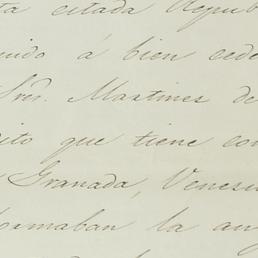 ta citada Repub
nido á bien cede
Sres. Martines de
dito que tiene con
Granada, Venesu
formaban la an